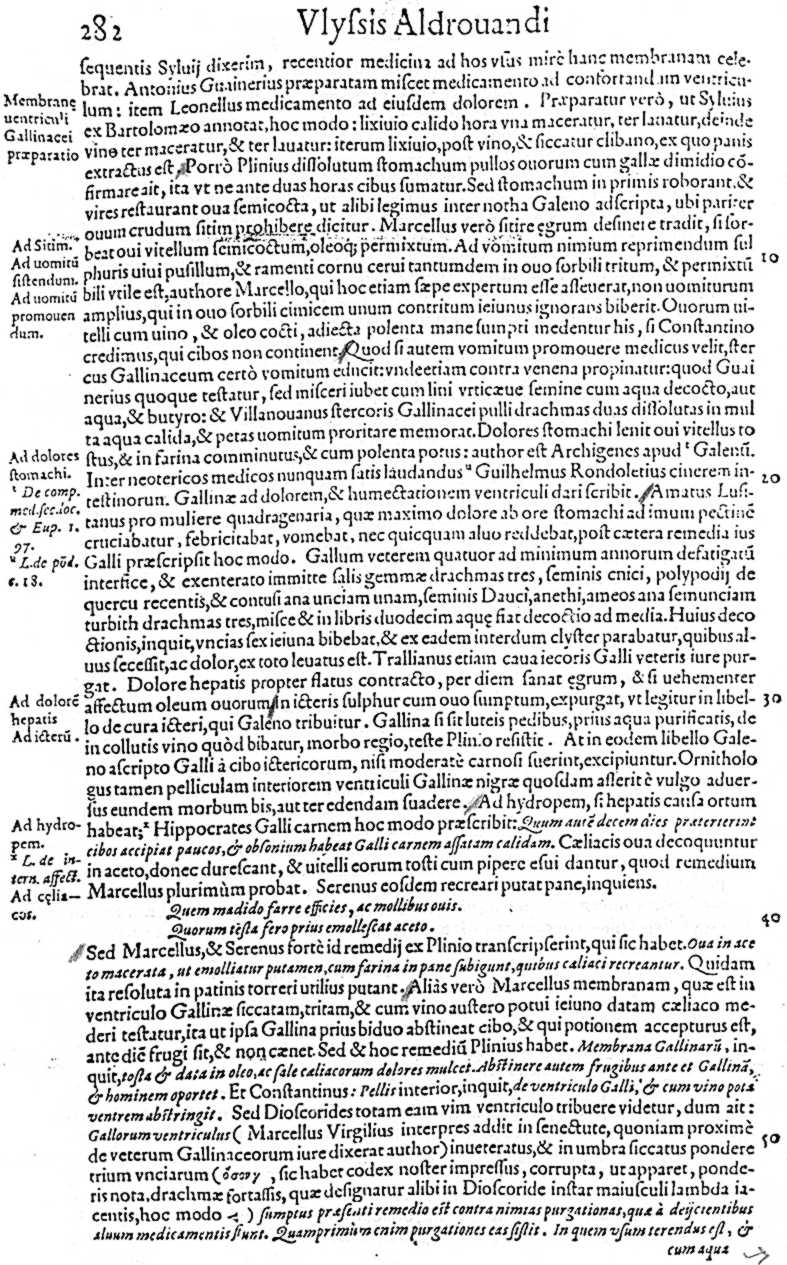 282 Vlyſsis Aldrouandi
ſequentis Syluij dixerim, recentior medicina ad hos vſus mirè hanc membranam cele-
brat. Antonius Guainerius præparatam miſcet medicamento ad confortandum ventricu-
lum: item Leonellus medicamento ad eiuſdem dolorem. Præparatur verò, ut Syluius
ex Bartolomæo annotat, hoc modo: lixiuio calido hora vna maceratur, ter lauatur, deinde
vino ter maceratur, & ter lauatur: iterum lixiuio, poſt vino, & ſiccatur clibano, ex quo panis
extractus eſt. Porrò Plinius diſſolutum ſtomachum pullos ouorum cum gallæ dimidio cō-
firmare ait, ita vt ne ante duas horas cibus ſumatur. Sed ſtomachum in primis roborant, &
vires reſtaurant oua ſemicocta, ut alibi legimus inter notha Galeno adſcripta, ubi pariter
ouum crudum ſitim prohibere dicitur. Marcellus verò ſitire ęgrum deſinere tradit, ſi ſor-
beat oui vitellum ſemicoctum, oleoq; permixtum. Ad vomitum nimium reprimendum ſul
phuris uiui puſillum, & ramenti cornu cerui tantumdem in ouo ſorbili tritum, & permixtū
bili vtile eſt, authore Marcello, qui hoc etiam ſæpe expertum eſſe aſſeuerat, non uomiturum
amplius, qui in ouo ſorbili cimicem unum contritum ieiunus ignorans biberit. Ouorum ui-
telli cum uino, & oleo cocti, adiecta polenta mane ſumpti medentur his, ſi Conſtantino
credimus, qui cibos non continent. Quod ſi autem vomitum promouere medicus velit, ſter
cus Gallinaceum certò vomitum educit: vnde etiam contra venena propinatur: quod Guai
nerius quoque teſtatur, ſed miſceri iubet cum lini vrticæue ſemine cum aqua decocto, aut
aqua, & butyro: & Villanouanus ſtercoris Gallinacei pulli drachmas duas diſſolutas in mul
ta aqua calida, & petas uomitum proritare memorat. Dolores ſtomachi lenit oui vitellus to
ſtus, & in farina comminutus, & cum polenta potus: author eſt Archigenes apud ᵗ Galenū.
Inter neotericos medicos nunquam ſatis laudandus ᵘ Guilhelmus Rondoletius cinerem in-
teſtinorun. Gallinæ ad dolorem, & humectationem ventriculi dari ſcribit. Amatus Luſi-
tanus pro muliere quadragenaria, quæ maximo dolore ab ore ſtomachi ad imum pectinē
cruciabatur, febricitabat, vomebat, nec quicquam aluo reddebat, poſt cætera remedia ius
Galli præſcripſit hoc modo. Gallum veterem quatuor ad minimum annorum defatigatū
interfice, & exenterato immitte ſalis gemmæ drachmas tres, ſeminis cnici, polypodij de
quercu recentis, & contuſi ana unciam unam, ſeminis Dauci, anethi, ameos ana ſemunciam
turbith drachmas tres, miſce & in libris duodecim aquę fiat decoctio ad media. Huius deco
ctionis, inquit, vncias ſex ieiuna bibebat, & ex eadem interdum clyſter parabatur, quibus al-
uus ſeceſſit, ac dolor, ex toto leuatus eſt. Trallianus etiam caua iecoris Galli veteris iure pur-
gat. Dolore hepatis propter flatus contracto, per diem ſanat ęgrum, & ſi uehementer
affectum oleum ouorum. In icteris ſulphur cum ouo ſumptum, expurgat, vt legitur in libel-
lo de cura icteri, qui Galeno tribuitur. Gallina ſi ſit luteis pedibus, prius aqua purificatis, de
in collutis vino quòd bibatur, morbo regio, teſte Plinio reſiſtit. At in eodem libello Gale-
no aſcripto Galli à cibo ictericorum, niſi moderatè carnoſi fuerint, excipiuntur. Ornitholo
gus tamen pelliculam interiorem ventriculi Gallinæ nigræ quoſdam aſſerit è vulgo aduer-
ſus eundem morbum bis, aut ter edendam ſuadere. Ad hydropem, ſi hepatis cauſa ortum
habeat, ˣ Hippocrates Galli carnem hoc modo præſcribit: Quum autē decem dies præterierint
cibos accipiat paucos, & obſonium habeat Galli carnem aſſatam calidam. Cæliacis oua decoquuntur
in aceto, donec dureſcant, & uitelli eorum toſti cum pipere eſui dantur, quod remedium
Marcellus plurimùm probat. Serenus eoſdem recreari putat pane, inquiens.
Quem madido farre efficies, ac mollibus ouis.
Quorum tèſta fero prius emolleſcat aceto.
Sed Marcellus, & Serenus fortè id remedij ex Plinio tranſcripſerint, qui ſic habet. Oua in ace
to macerata, ut emolliatur putamen, cum farina in pane ſubigunt, quibus cæliaci recreantur. Quidam
ita reſoluta in patinis torreri utilius putant. Aliàs verò Marcellus membranam, quæ eſt in
ventriculo Gallinæ ſiccatam, tritam, & cum vino auſtero potui ieiuno datam cæliaco me-
deri teſtatur, ita ut ipſa Gallina prius biduo abſtineat cibo, & qui potionem accepturus eſt,
ante diē frugi ſit, & non cænet. Sed & hoc remediū Plinius habet. Membrana Gallinarū, in-
quit, toſta & data in oleo, ac ſale cæliacorum dolores mulcet. Abſtinere autem frugibus ante et Gallinā,
& hominem oportet. Et Conſtantinus: Pellis interior, inquit, de ventriculo Galli, & cum vino pota
ventrem abſtringit. Sed Dioſcorides totam eam vim ventriculo tribuere videtur, dum ait:
Gallorum ventriculus (Marcellus Virgilius interpres addit in ſenectute, quoniam proximè
de veterum Gallinaceorum iure dixerat author) inueteratus, & in umbra ſiccatus pondere
trium vnciarum (, ſic habet codex noſter impreſſus, corrupta, ut apparet, ponde-
ris nota, drachmæ fortaſſis, quæ deſignatur alibi in Dioſcoride inſtar maiuſculi lambda ia-
centis, hoc modo ) ſumptus præſenti remedio eſt contra nimias purgationas, quæ à deijcientibus
aluum medicamentis fiunt. Quamprimum enim purgationes eas ſiſtit. In quem vſum terendus eſt, &
cum aqua
Membranę
uentriculi
Gallinacei
præparatio
Ad Sitim.
Ad uomitū
ſiſtendum.
Ad uomitū
promouen
dum.
Ad dolores
ſtomachi.
ᵗ De comp.
med. ſec. loc.
& Eup. 1.
97.
ᵘ L. de pōd.
c. 18.
Ad dolorē
hepatis
Ad icterū.
Ad hydro-
pem.
ˣ L. de in-
tern. affect.
Ad cęlia-
cos.
10
20
30
40
50